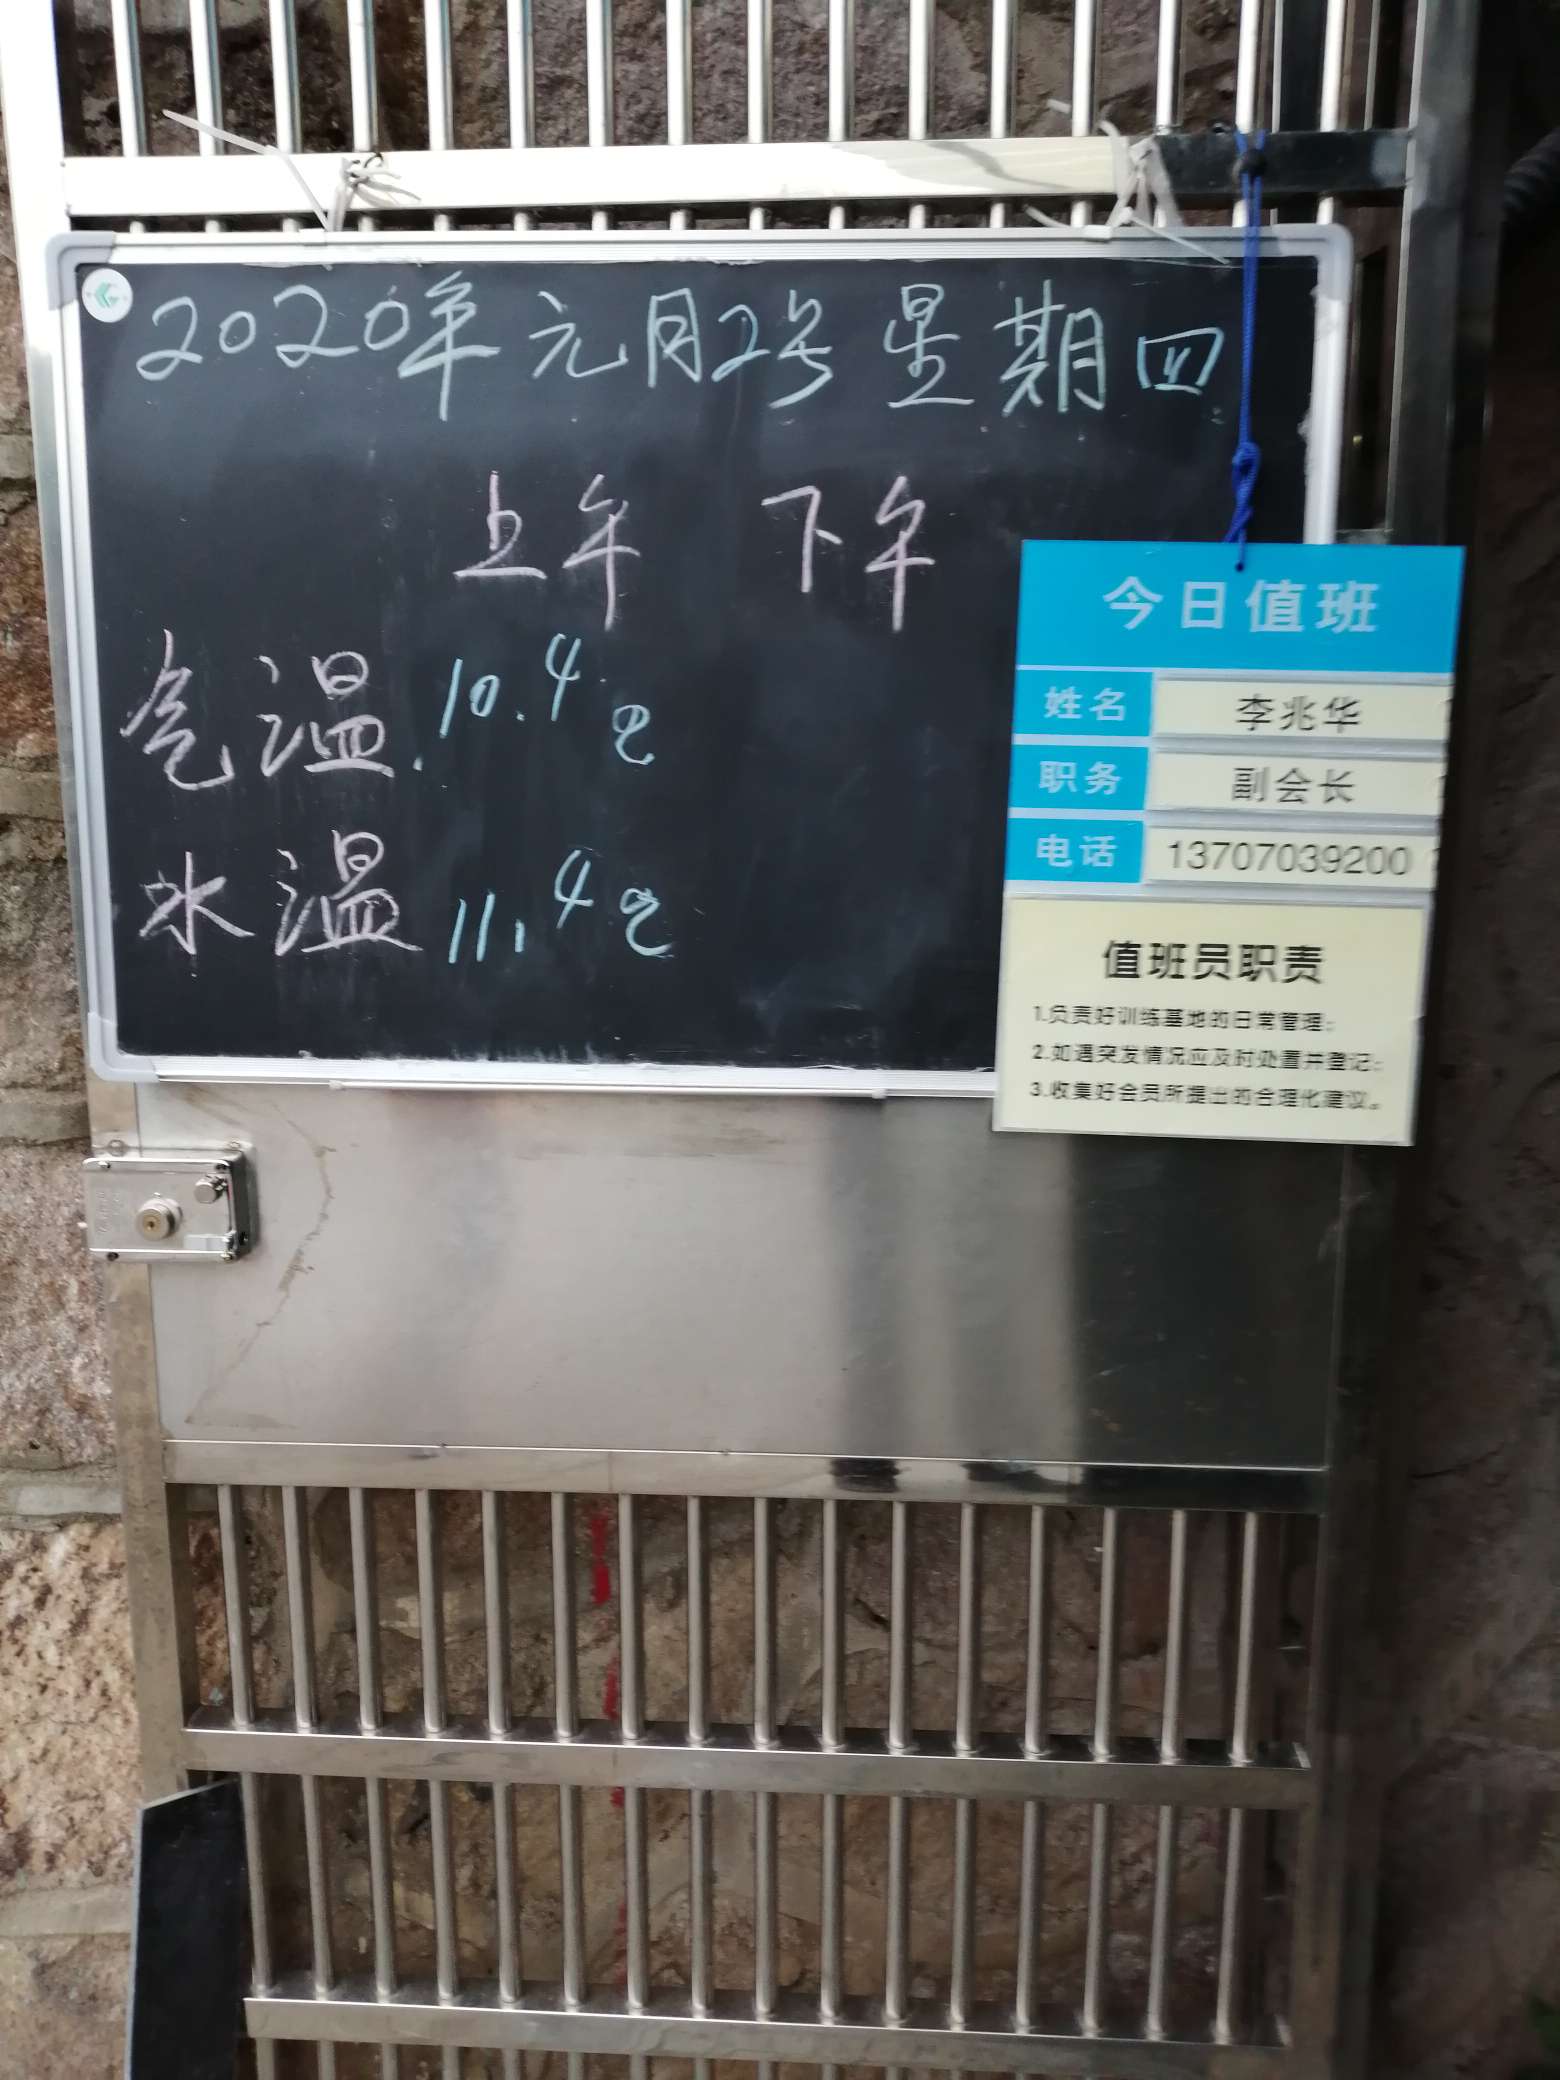 2020年元月2号星期四
上午 下午
气温.10.4℃
水温11.4℃
今日值班
姓名 李兆华
职务 副会长
电话 13707039200
值班员职责
1.负责好训练基地的日常管理;
2.如遇突发情况应及时处置并登记;
3.收集好会员所提出的合理化建议。